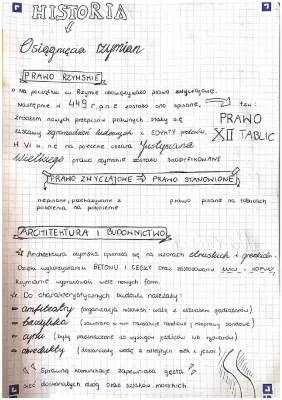 HISTORIA
Osiągnięcia rzymian
PRAWO RZYMSKIE
Na początku w Rzymie obowiązywało prawo zwyczajowe.
Następnie w 449 r. p.n.e zostało ono spisane, tzw:
źródłem nowych przepisów prawnych stały się PRAWO
uchwały zgromadzeń ludowych i EDYKTY pretorów. XII TABLIC
W VI w. n.e na polecenie cesarza Justyniana
Wielkiego prawo rzymskie zostało skodyfikowane
PRAWO ZWYCZAJOWE ⇒ PRAWO STANOWIONE
niepisane, przekazywane z prawo pisane na tablicach
pokolenia na pokolenie
ARCHITEKTURA I BUDOWNICTWO
☆ Architektura rzymska opierała się na wzorcach etruskich i greckich.
Dzięki wykorzystaniu BETONU I CEGŁY oraz zastosowaniu ŁUKU i KOPUŁ,
rzymianie wypracowali wiele nowych form.
☆ Do charakterystycznych budowli należały:
amfiteatry (organizacja widowisk - walk z udziałem gladiatorów)
bazylika (zawierano w nim transakcje handlowe i rozprawy sądowe)
cyrki (były przeznaczone do wyścigów rydwanów)
akwedukty (dostarczały wodę z odległych rzek i jezior)
Sprawną komunikację zapewniała gęsta
sieć doskonałych dróg oraz szlaków morskich